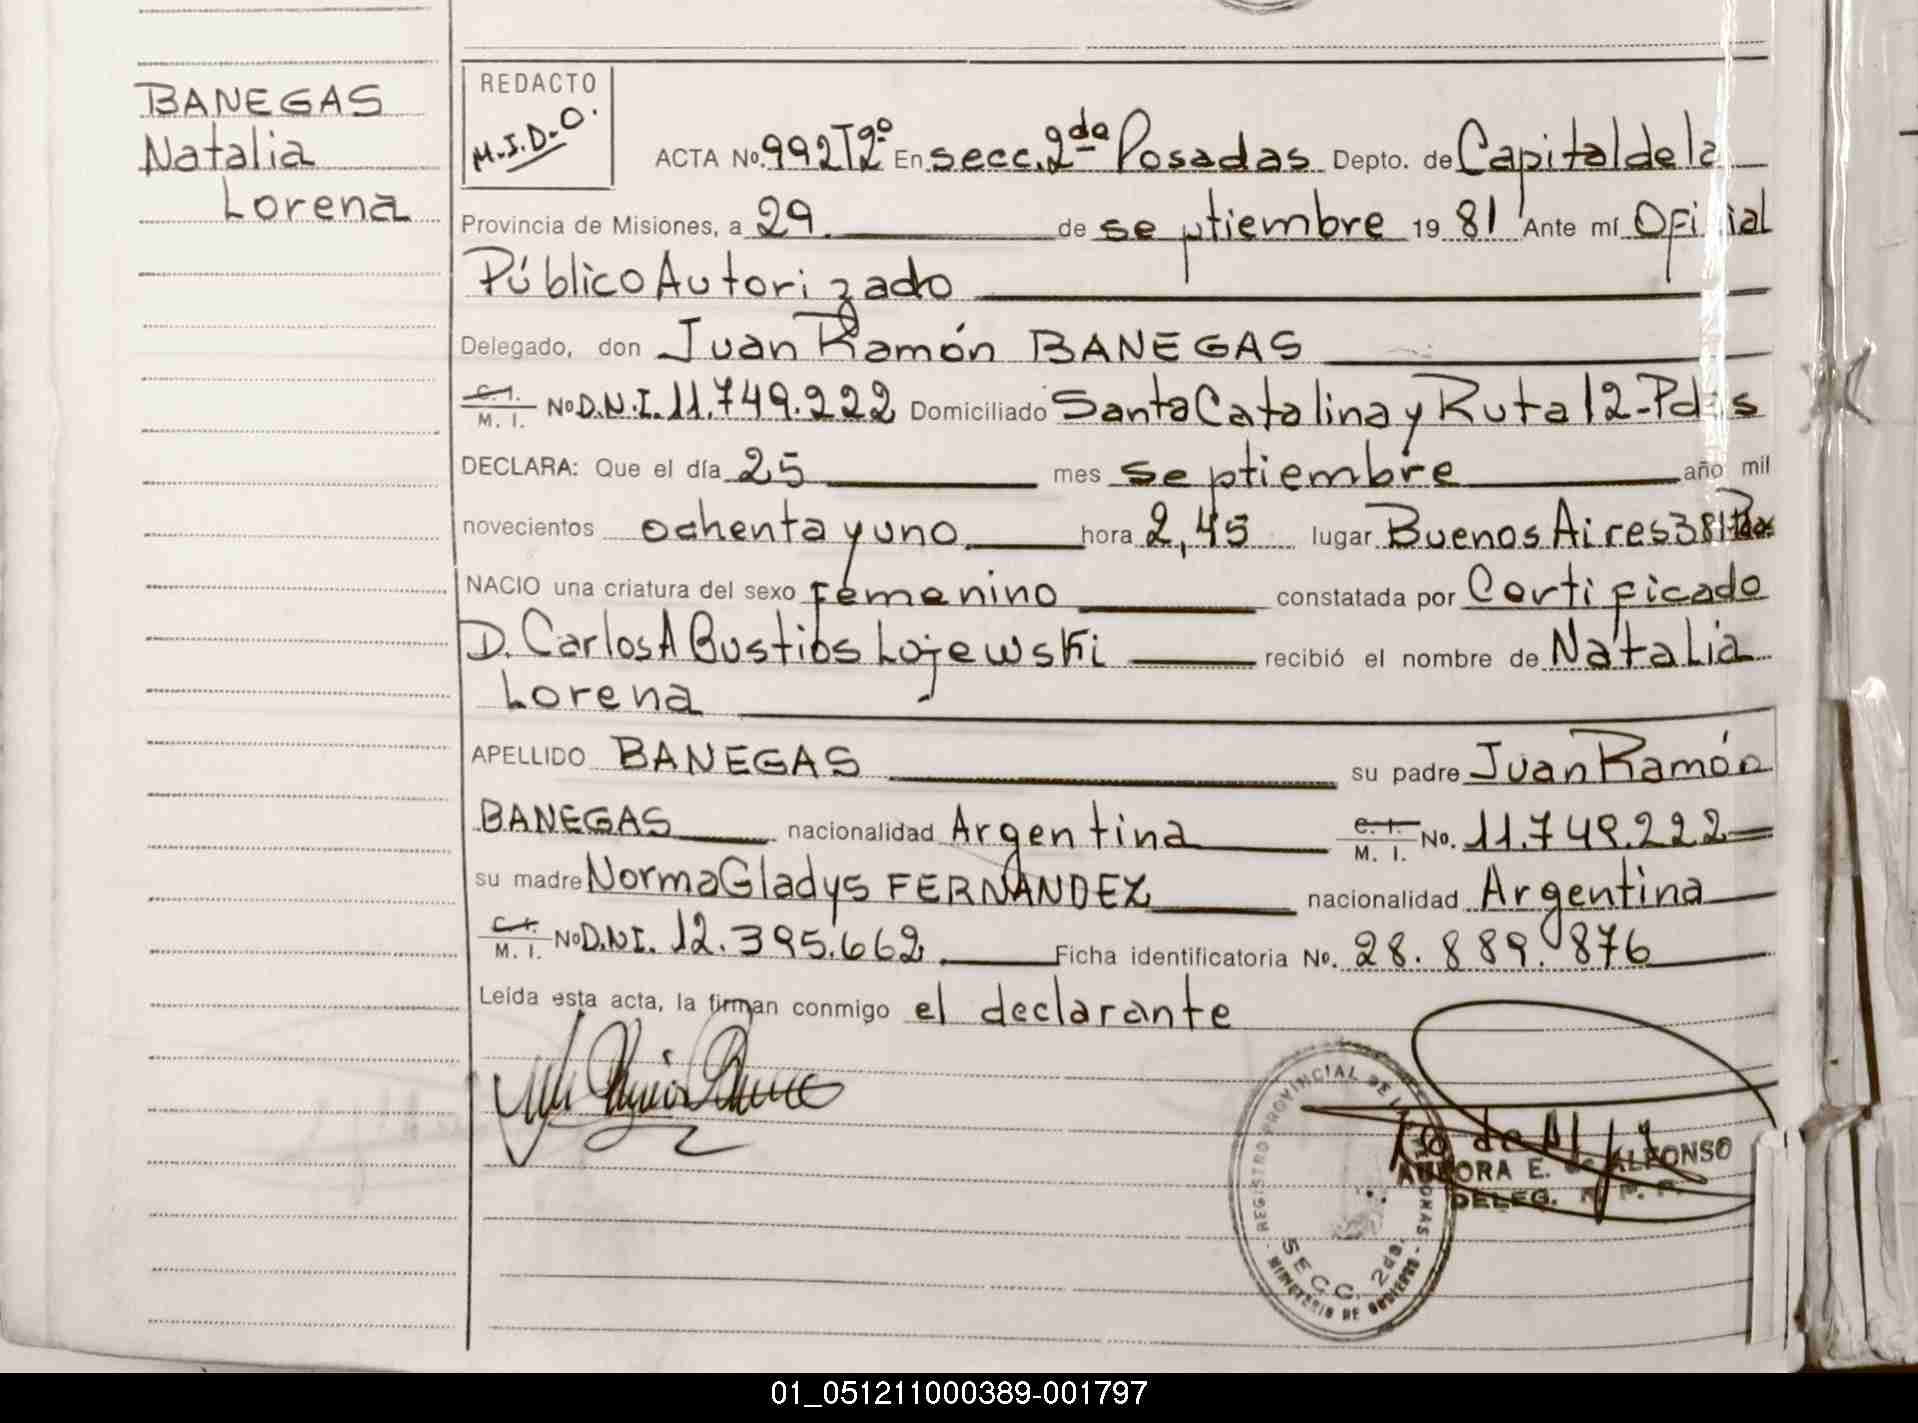 BANEGAS
Natalia
Lorena
REDACTO
M.I.D.O.
ACTA No. 992 Tº 2º En secc. 2da Posadas Depto. de Capital de la
Provincia de Misiones, a 29 de septiembre 19 81 Ante mí Oficial
Público Autorizado
Delegado, don Juan Ramón BANEGAS
C. I. M. I. No D.N.I. 11.749.222 Domiciliado Santa Catalina y Ruta 12-Pdas
DECLARA: Que el día 25 mes septiembre año mil
novecientos ochenta y uno hora 2,45 lugar Buenos Aires 381 Pdas
NACIO una criatura del sexo Femenino constatada por Certificado
D. Carlos A Bustios Lojewski recibió el nombre de Natalia
Lorena
APELLIDO BANEGAS su padre Juan Ramón
BANEGAS nacionalidad Argentina C. I. M. I. No. 11.749.222
su madre Norma Gladys FERNANDEZ nacionalidad Argentina
C. I. M. I. No D.N.I. 12.395.662 Ficha identificatoria No. 28.889.876
Leída esta acta, la firman conmigo el declarante
REGISTRO PROVINCIAL DE LAS PERSONAS
SECC. 2da.
MINISTERIO DE GOBIERNO
AURORA E. de ALFONSO
DELEG. R. P. P.
01_051211000389-001797